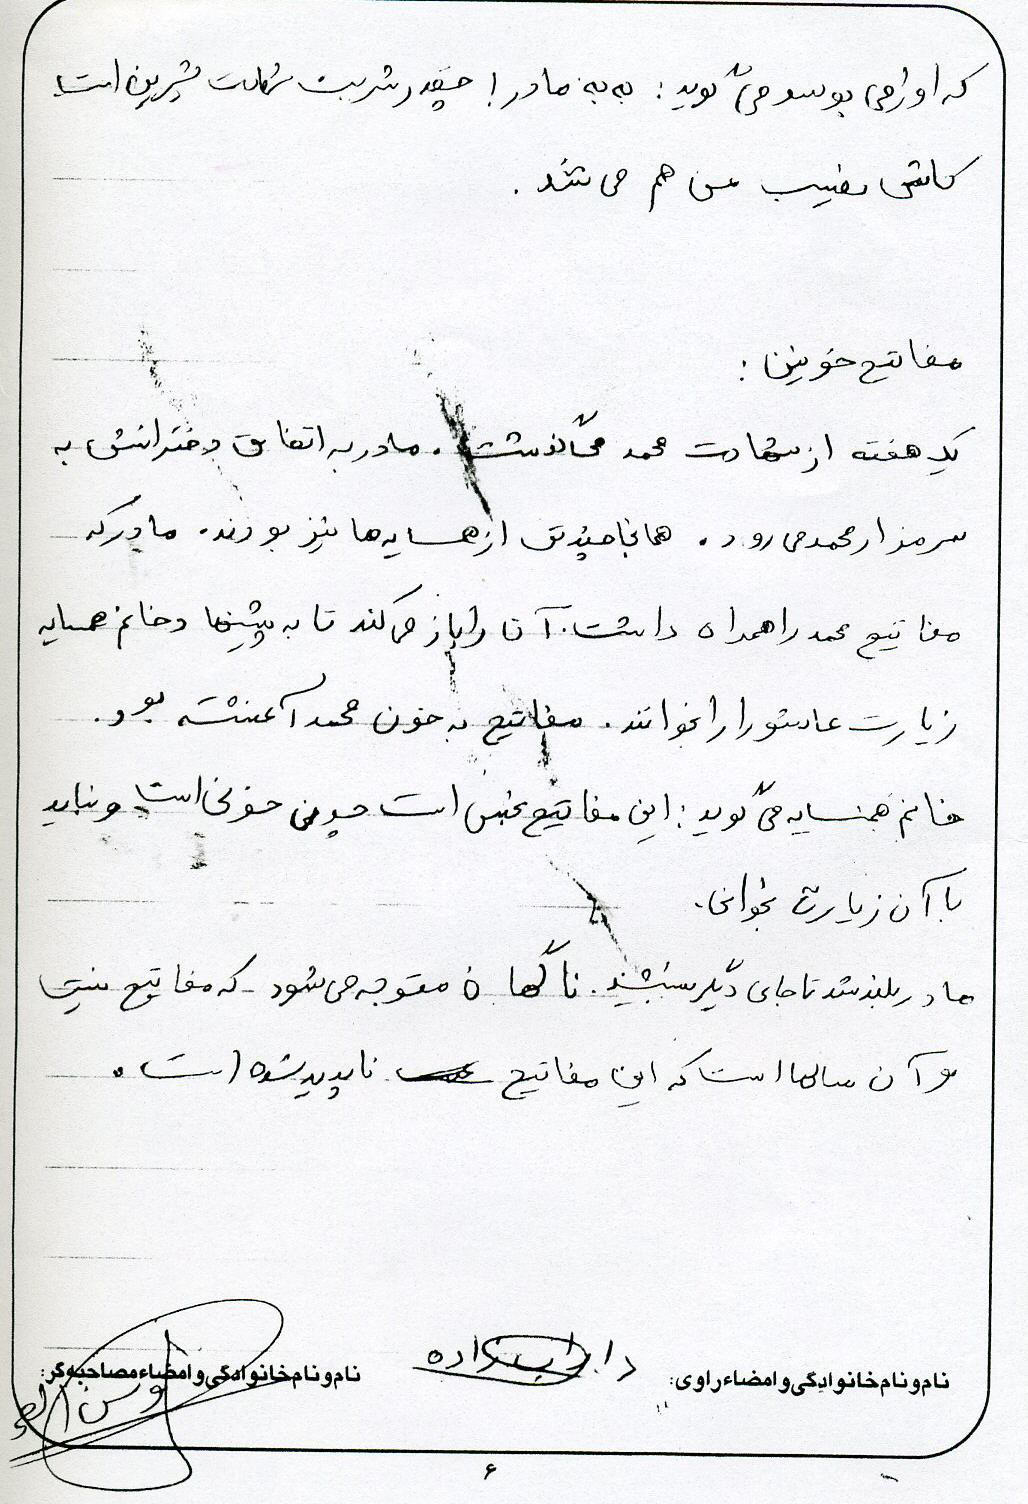 که او را می بوسد می گوید: به به مادر! چقدر شربت شهادت شیرین است
کاش نصیب من هم می شد.
مفاتیح خونین:
یک هفته از شهادت محمد می گذشت. مادر به اتفاق دخترانش به
سر مزار محمد می رود. همانجا چند تن از همسایه ها نیز بودند. مادر که
مفاتیح محمد را همراه داشت. آن را باز می کند تا به پیشنهاد خانم همسایه
زیارت عاشورا را بخوانند. مفاتیح به خون محمد آغشته بود.
خانم همسایه می گوید: این مفاتیح نجس است چون خونی است و نباید
با آن زیارت بخوانی.
مادر بلند شد تا جای دیگر بنشیند. ناگهان متوجه می شود که مفاتیح نیست
و آن سالها است که این مفاتیح ناپدید شده است.
نام و نام خانوادگی و امضاء راوی:
نام و نام خانوادگی و امضاء مصاحبه گر:
۶